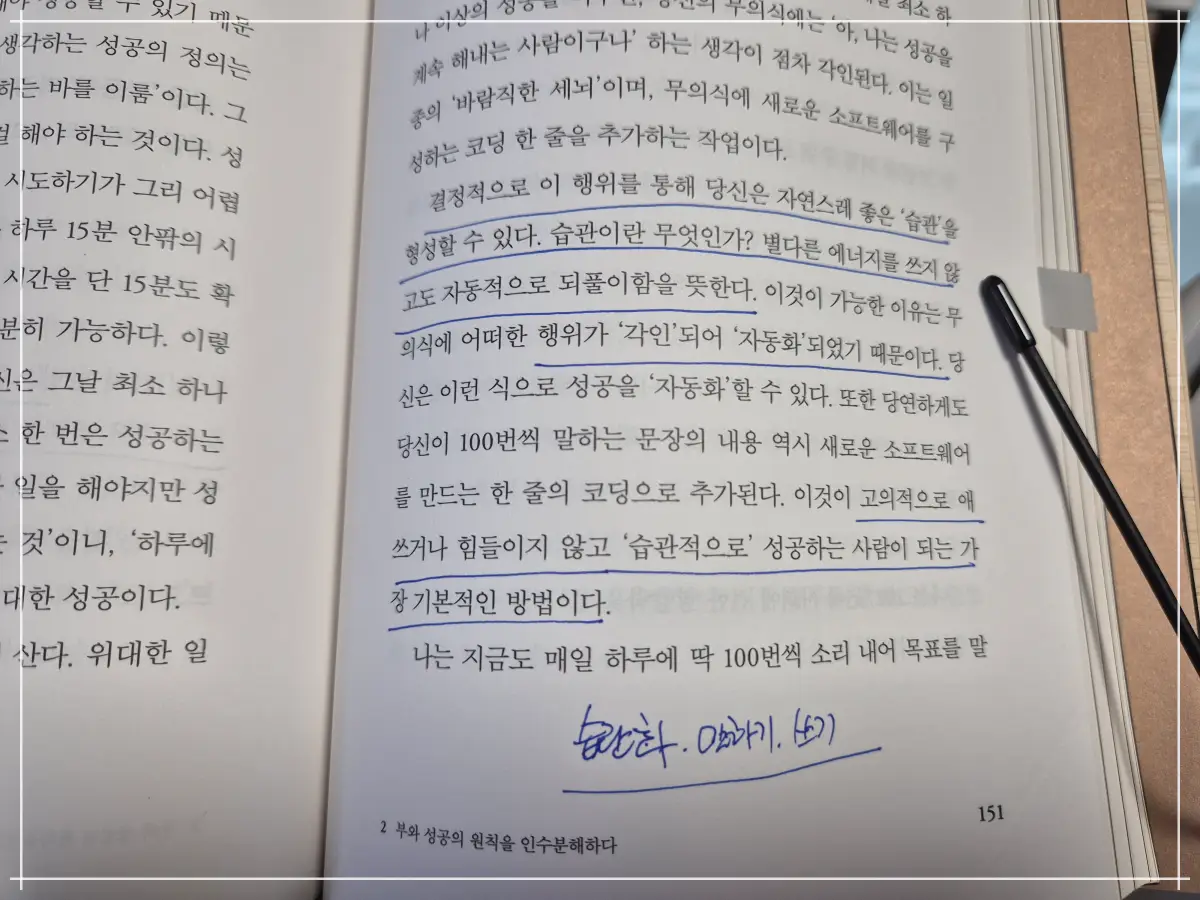 수 있기 때문
생각하는 성공의 정의는
하는 바를 이룸'이다. 그
해야 하는 것이다. 성
시도하기가 그리 어렵
하루 15분 안팎의 시
시간을 단 15분도 확
분히 가능하다. 이렇
신은 그날 최소 하나
한 번은 성공하는
일을 해야지만 성
것'이니, '하루에
대한 성공이다.
산다. 위대한 일
최소 하
나 이상의 성공을 무의식에는 '아, 나는 성공을
계속 해내는 사람이구나' 하는 생각이 점차 각인된다. 이는 일
종의 '바람직한 세뇌'이며, 무의식에 새로운 소프트웨어를 구
성하는 코딩 한 줄을 추가하는 작업이다.
결정적으로 이 행위를 통해 당신은 자연스레 좋은 '습관'을
형성할 수 있다. 습관이란 무엇인가? 별다른 에너지를 쓰지 않
고도 자동적으로 되풀이함을 뜻한다. 이것이 가능한 이유는 무
의식에 어떠한 행위가 '각인'되어 '자동화'되었기 때문이다. 당
신은 이런 식으로 성공을 '자동화'할 수 있다. 또한 당연하게도
당신이 100번씩 말하는 문장의 내용 역시 새로운 소프트웨어
를 만드는 한 줄의 코딩으로 추가된다. 이것이 고의적으로 애
쓰거나 힘들이지 않고 '습관적으로' 성공하는 사람이 되는 가
장 기본적인 방법이다.
나는 지금도 매일 하루에 딱 100번씩 소리 내어 목표를 말
습관화. 쓰기
2 부와 성공의 원칙을 인수분해하다
151